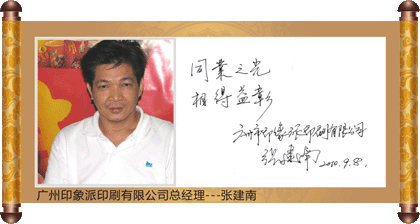 同業之光
相得益彰
广州市印象派印刷有限公司
张建南
2010.9.8.
广州印象派印刷有限公司总经理---张建南